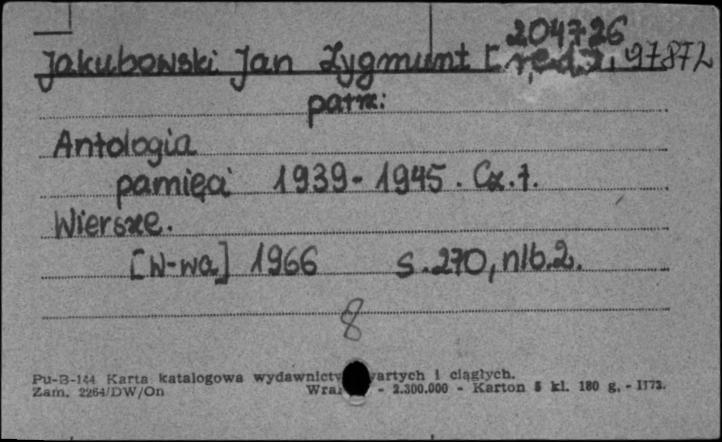 204726
Jakubowski Jan Zygmunt [red.], 97872
patrz:
Antologia
pamięci 1939-1945. Cz. 1.
Wiersze.
[W-wa] 1966 s. 270, nlb. 2.
8
Pu-B-144 Karta katalogowa wydawnictw zwartych i ciągłych.
Zam. 2264/DW/On - 2.300.000 - Karton 5 kl. 180 g.